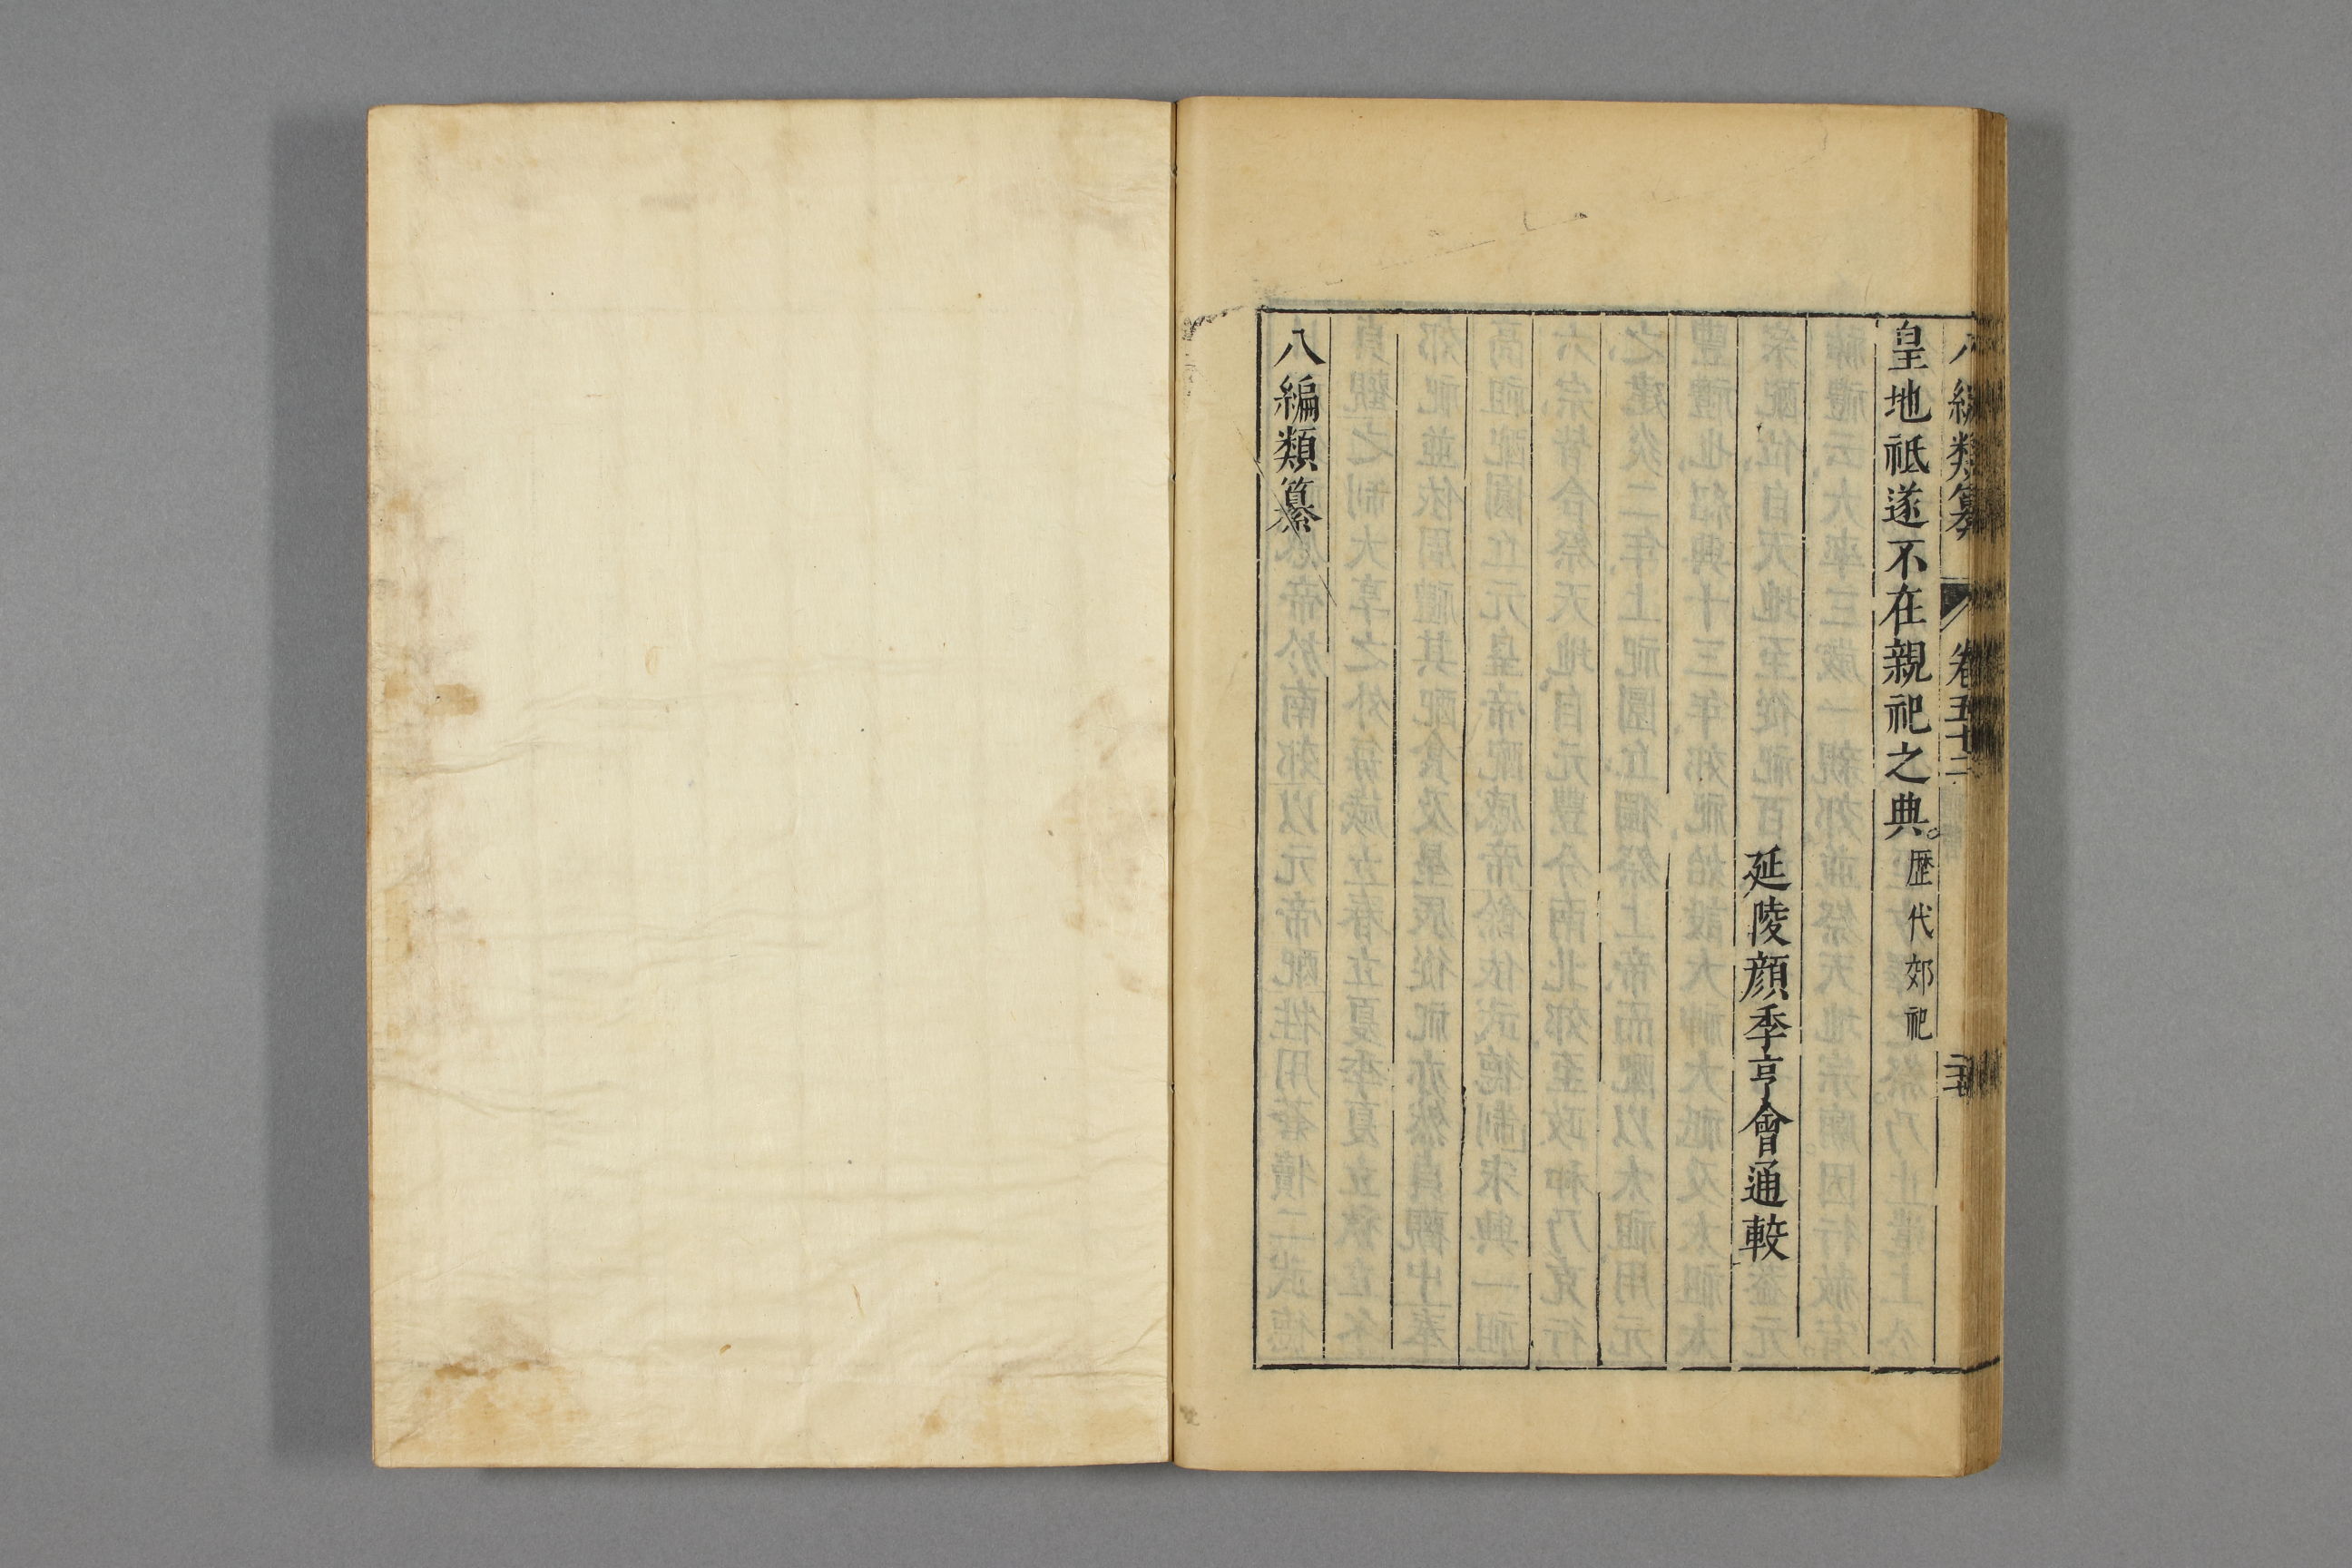 八編類纂 卷五十二
皇地祗遂不在親祀之典。歷代郊祀
延陵顔季亨會通較
八編類纂